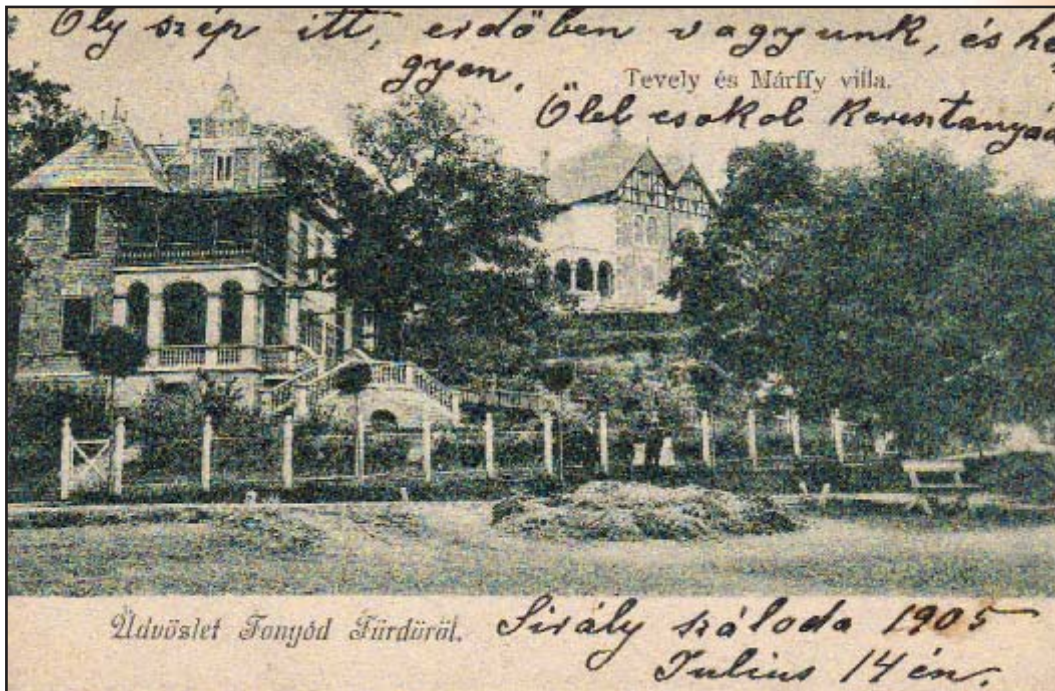 Oly szép itt, erdőben vagyunk, és he
gyen.
Tevely és Márffy villa.
Ölel csokol Keresztanyád
Üdvözlet Fonyód Fürdőről.
Sirály száloda 1905
Julius 14 én.